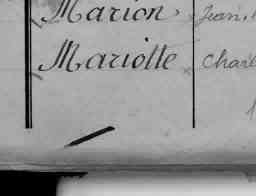 Marion, Jean,
Mariotte, Charl